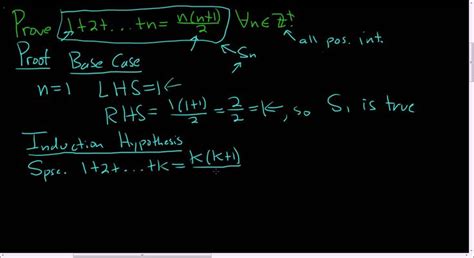 Prove 1+2+...+n = n(n+1)/2 ∀n∈ℤ⁺
Sn
all pos. int.
Proof Base Case
n=1 LHS=1←
RHS = 1(1+1)/2 = 2/2 = 1←, so S₁ is true
Induction Hypothesis
Spse. 1+2+...+k = k(k+1)/